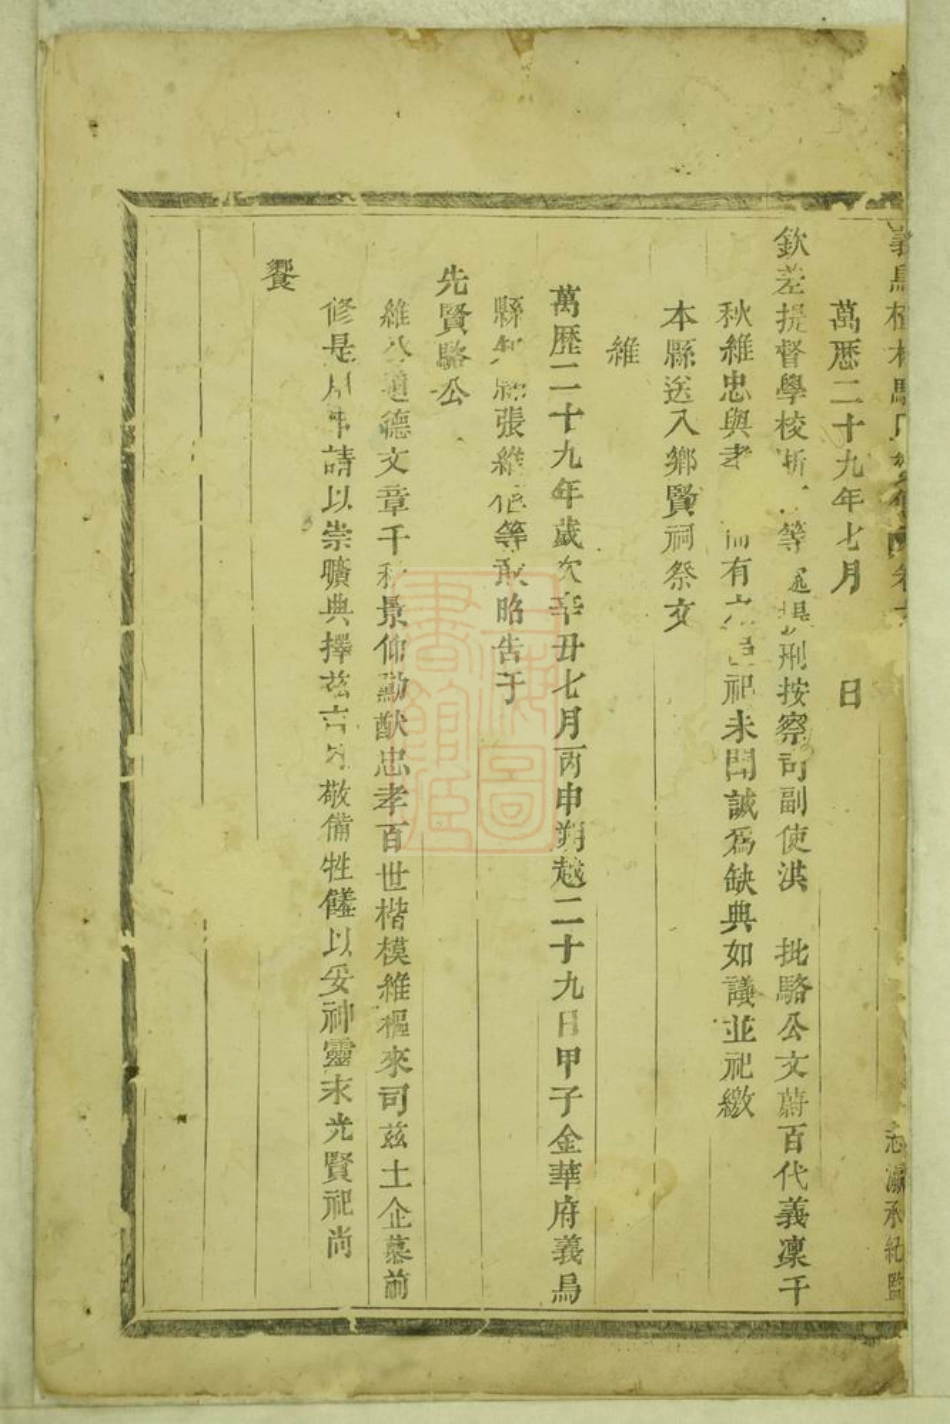 義烏 林駱氏 卷
志瀛承紀監
萬歷二十九年七月 日
欽差提督學校浙 等 處提刑按察司副使洪 批駱公文蔚百代義凜千
秋維忠與孝 有 祀未聞誠為缺典如議並祀繳
本縣送入鄉賢祠祭文
維
萬歷二十九年歲次辛丑七月丙申朔越二十九日甲子金華府義烏
縣知縣張維樞等敢昭告于
先賢駱公
維公道德文章千秋景仰勳猷忠孝百世楷模維樞來司茲土企慕前
修是用 請以崇曠典擇茲吉 敬備牲饈以妥神靈末光賢祀尚
饗
上海圖書館藏